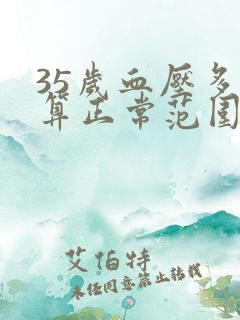 35岁血压多
算正常范围
艾伯特
未经同意禁止转载